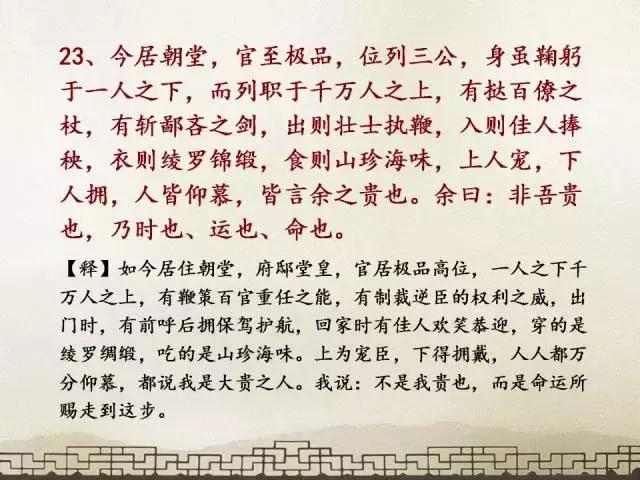 23、今居朝堂，官至极品，位列三公，身虽鞠躬
于一人之下，而列职于千万人之上，有挞百僚之
杖，有斩鄙吝之剑，出则壮士执鞭，入则佳人捧
秧，衣则绫罗锦缎，食则山珍海味，上人宠，下
人拥，人皆仰慕，皆言余之贵也。余曰：非吾贵
也，乃时也、运也、命也。
【释】如今居住朝堂，府邸堂皇，官居极品高位，一人之下千
万人之上，有鞭策百官重任之能，有制裁逆臣的权利之威，出
门时，有前呼后拥保驾护航，回家时有佳人欢笑恭迎，穿的是
绫罗绸缎，吃的是山珍海味。上为宠臣，下得拥戴，人人都万
分仰慕，都说我是大贵之人。我说：不是我贵也，而是命运所
赐走到这步。